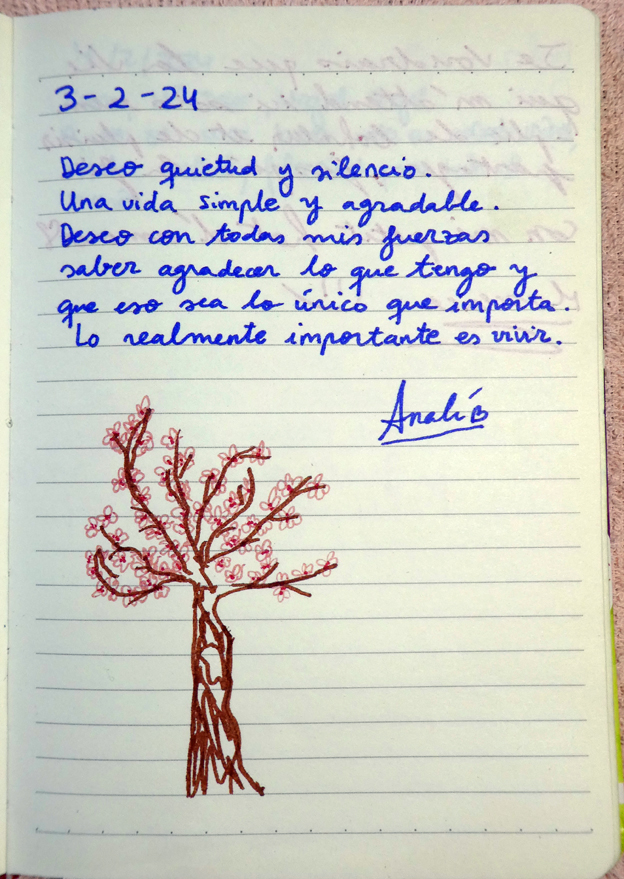 3-2-24
Deseo quietud y silencio.
Una vida simple y agradable.
Deseo con todas mis fuerzas
saber agradecer lo que tengo y
que eso sea lo único que importa.
Lo realmente importante es vivir.
Analí